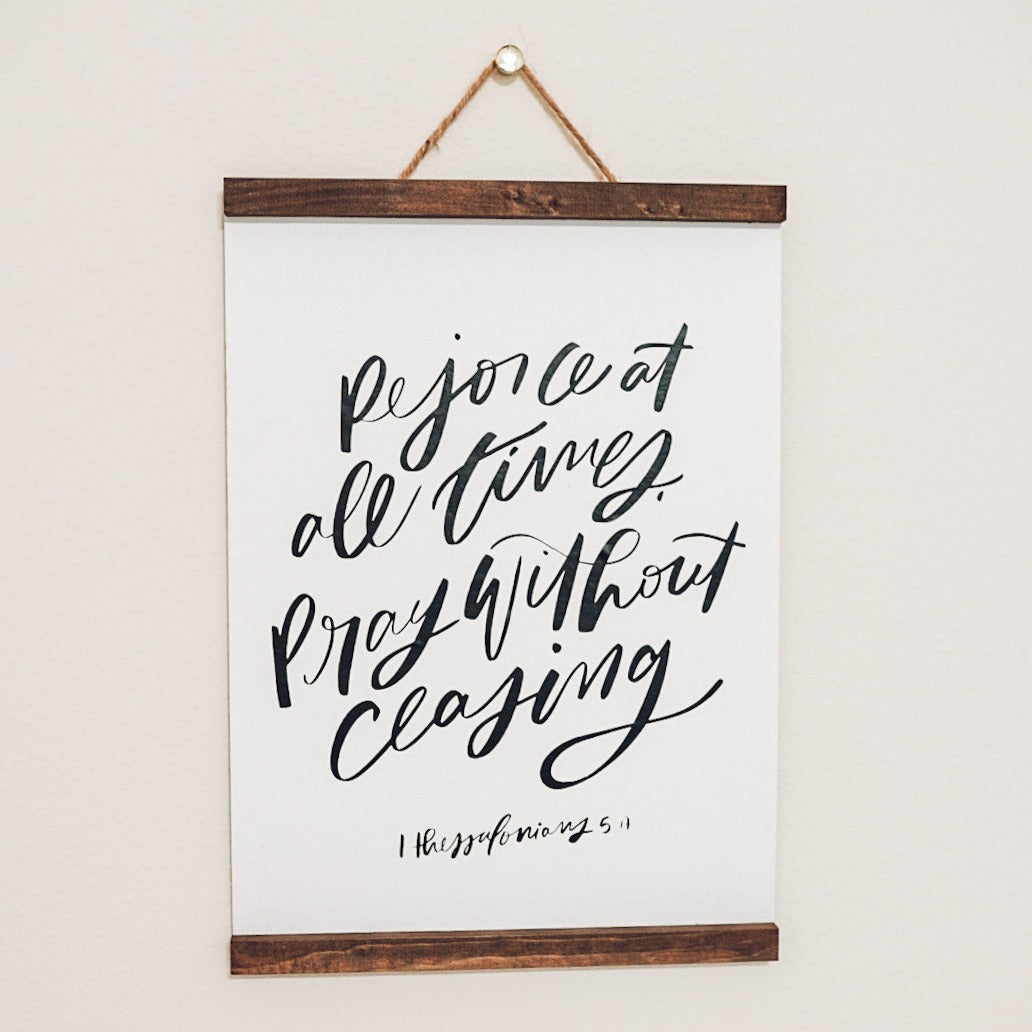 Rejoice at
all times.
Pray without
ceasing
1 Thessalonians 5